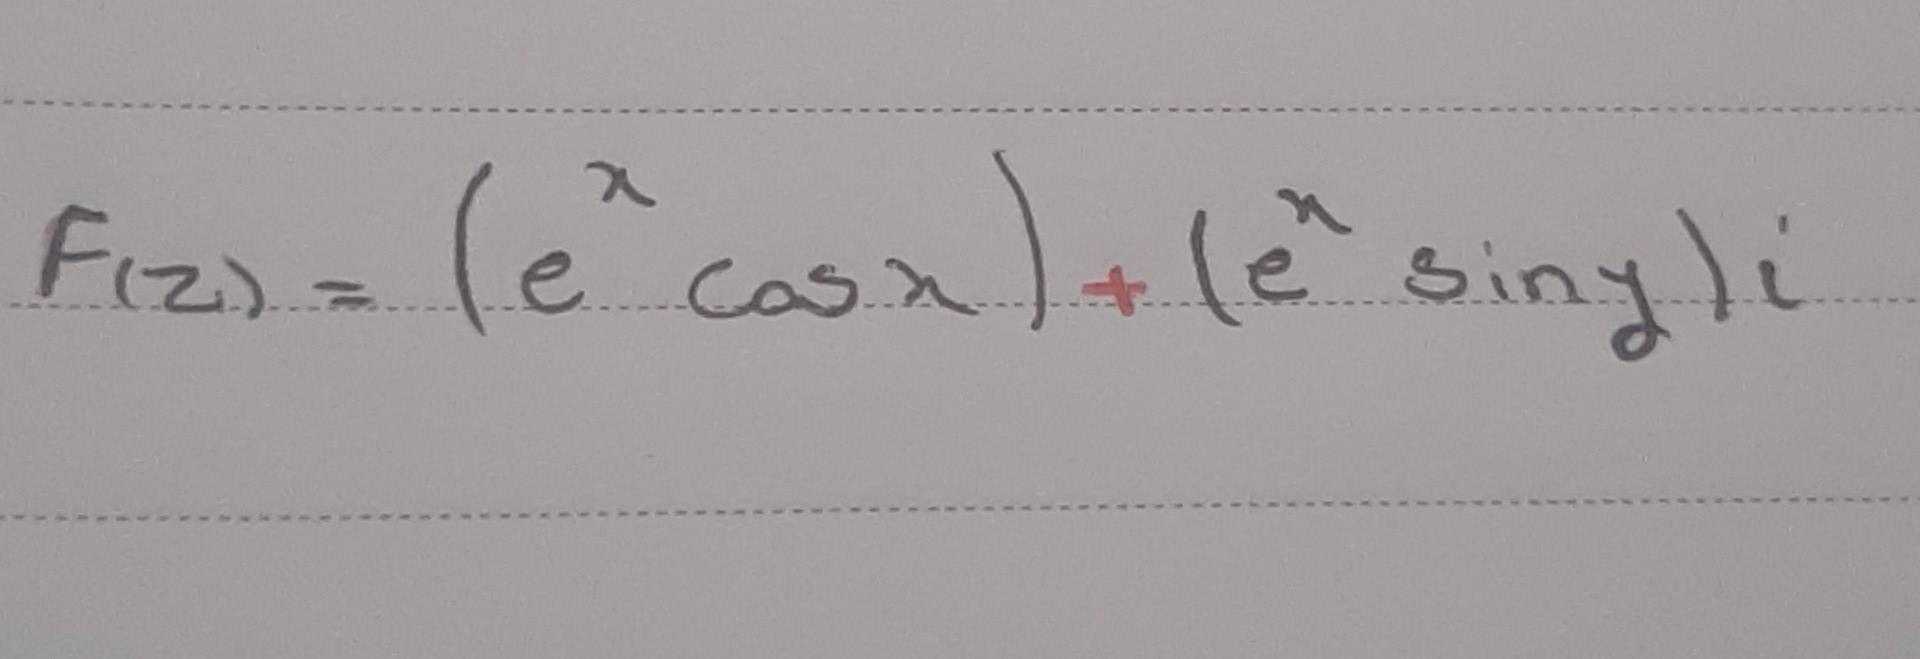 F(z) = (e^x cos x) + (e^x sin y) i